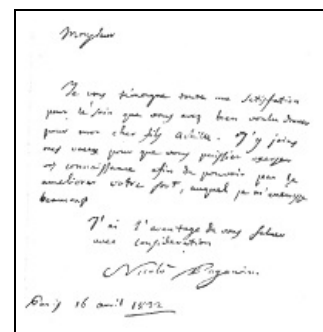 Monsieur
Je vous témoigne toute ma satisfaction
pour le soin que vous avez bien voulu donner
pour mon cher fils Achille. J'y joins
mes vœux pour que vous puissiez
vos connaissances afin de pouvoir par là
améliorer votre sort, auquel je m'intéresse
beaucoup
J'ai l'avantage de vous saluer
avec considération
Nicolò Paganini
Paris 16 avril